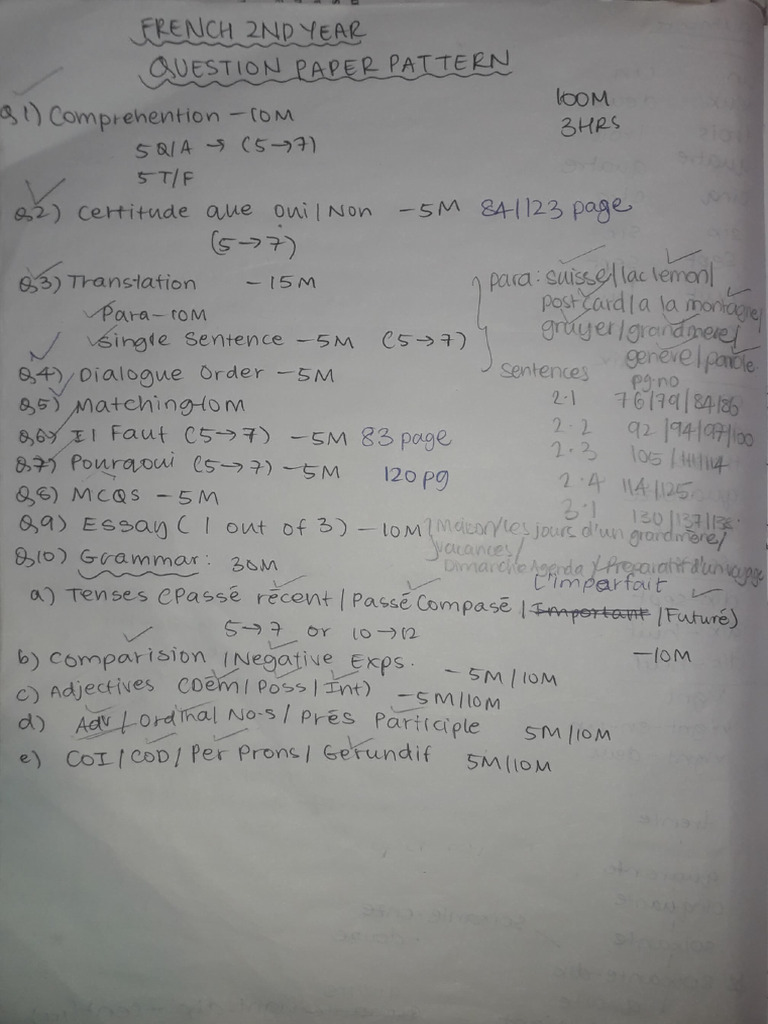 FRENCH 2ND YEAR
QUESTION PAPER PATTERN
100M
3HRS
Q1) Comprehention - 10M
5 Q/A → (5→7)
5 T/F
Q2) Certitude que oui/Non - 5M 84/123 page
(5→7)
Q3) Translation - 15M
Para - 10M
Single Sentence - 5M (5→7)
para: suisse/lac lemon/
postcard/a la montagne/
gruyer/grandmere/
geneve/parole
Sentences pg.no
2.1 76/79/84/86
2.2 92/94/97/100
2.3 105/111/114
2.4 114/125
3.1 130/137/138
Q4) Dialogue Order - 5M
Q5) Matching 10M
Q6) Il Faut (5→7) - 5M 83 page
Q7) Pourqoui (5→7) - 5M 120 pg
Q8) MCQS - 5M
Q9) Essay (1 out of 3) - 10M {Maison/les jours d'un grandmère/
vacances/
Dimanche Agenda / Preparatif d'un voyage
Q10) Grammar: 30M
L'imparfait
a) Tenses (Passé récent / Passé Compasé / Important / Futuré)
5→7 or 10→12
-10M
b) Comparision / Negative Exps. - 5M/10M
c) Adjectives (Dém/Poss/Int) - 5M/10M
d) Adv / Ordinal No-s / Prés Participle 5M/10M
e) COI / COD / Per Prons / Gerundif 5M/10M